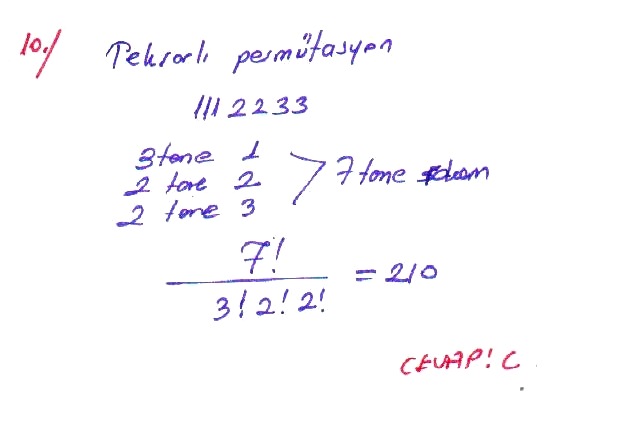 10./ Tekrarlı permütasyon
1112233
3 tane 1
2 tane 2 > 7 tane
2 tane 3
7!
3! 2! 2! = 210
CEVAP! C